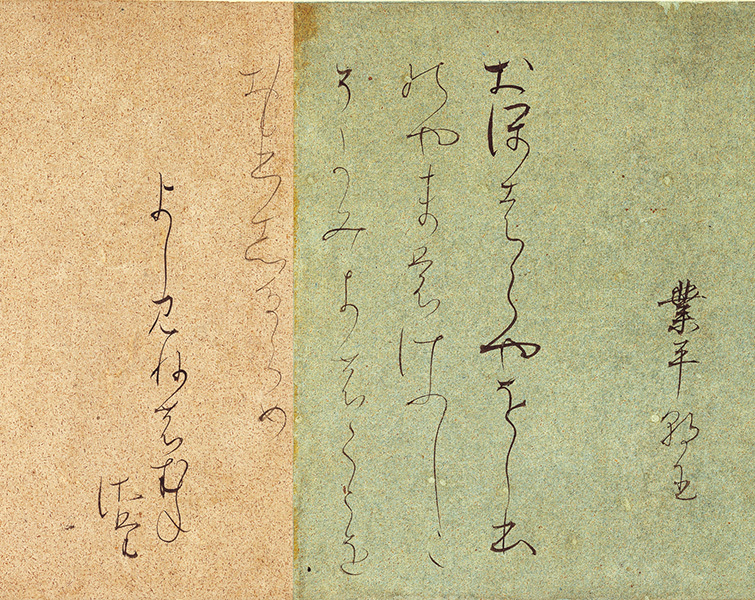 業平朝臣
おほはらやをしほ
のやまもけふこ
そはかみよのことを
おもひしるらめ
よしみねのむね
さだ